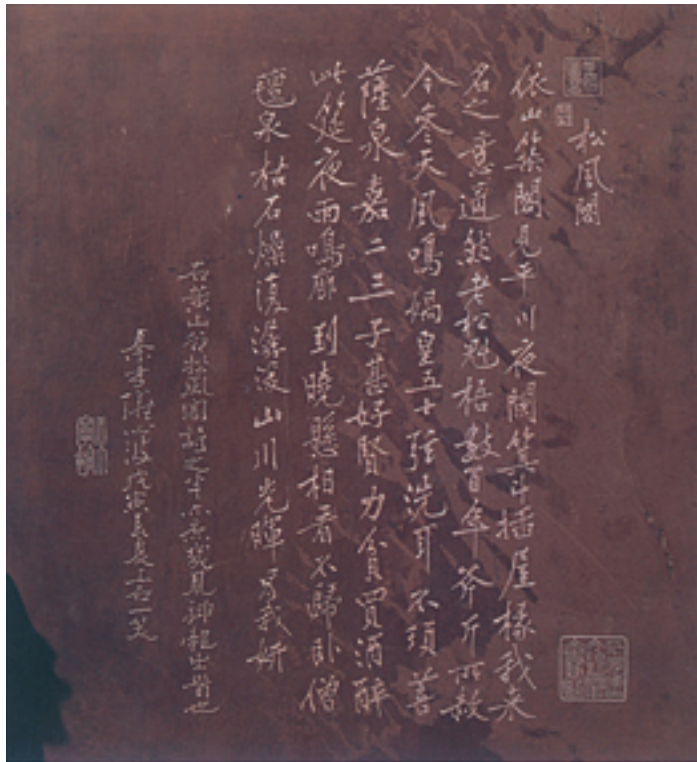 松風閣
依山築閣見平川夜闌箕斗插屋椽我来
名之意適然老松魁梧數百年斧斤所赦
今參天風鳴媧皇五十弦洗耳不須菩
薩泉嘉二三子甚好賢力貧買酒醉
此筵夜雨鳴廊到曉懸相看不歸卧僧
氊泉枯石燥復潺湲山川光輝為我妍
山谷松風閣詩之
戊寅長夏